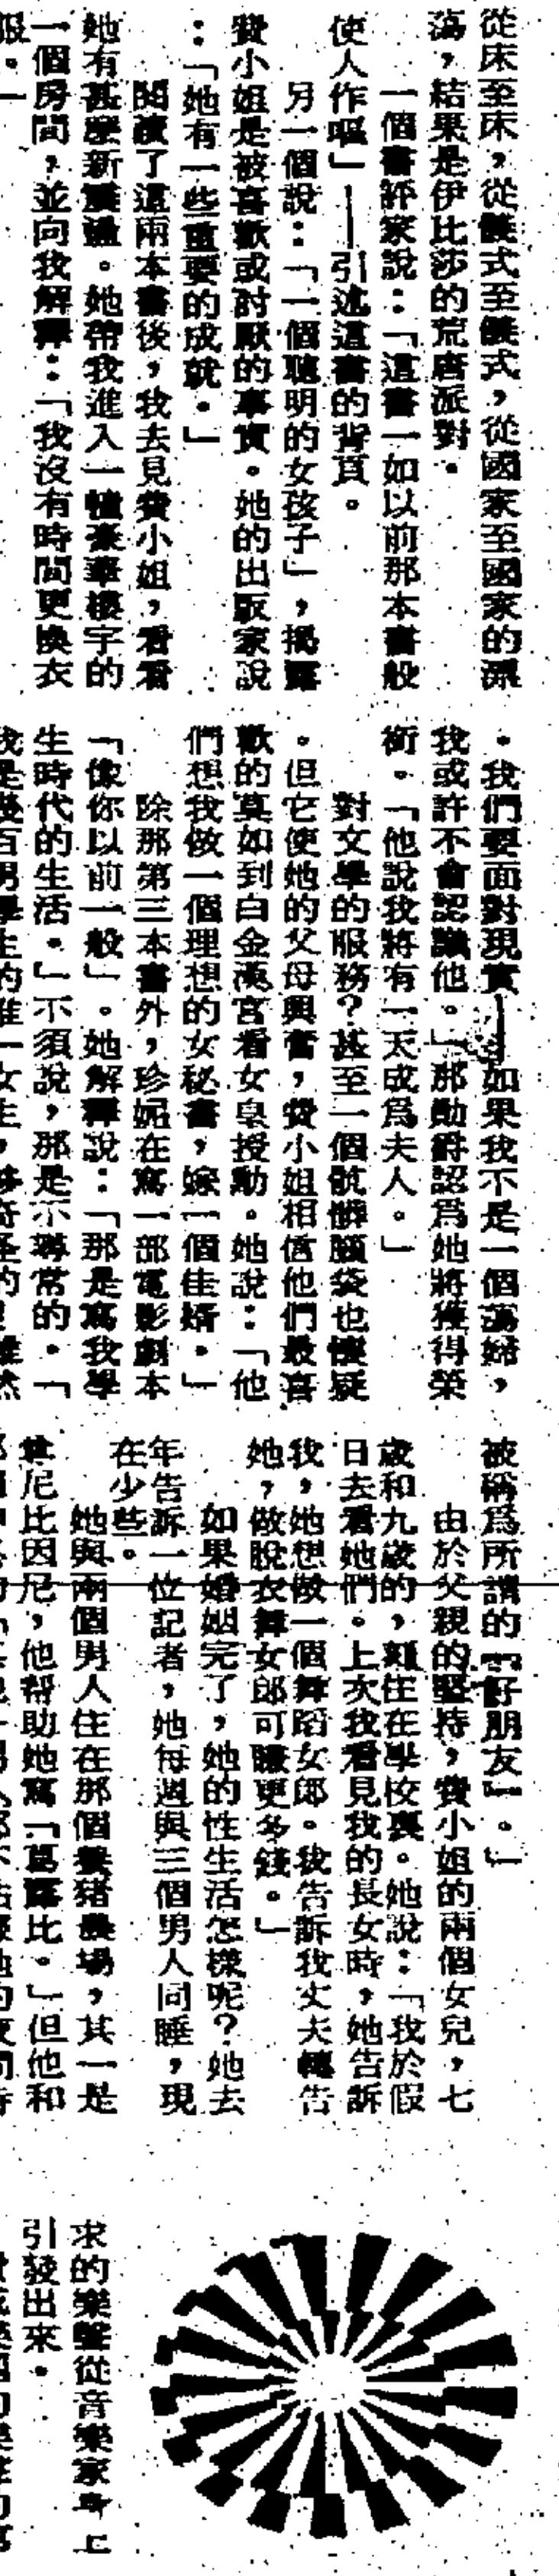 從床至床，從儀式至儀式，從國家至國家的漂
蕩，結果是伊比莎的荒唐派對。
一個書評家說：「這書一如以前那本書般
使人作嘔」——引述這書的背頁。
另一個說：「一個聰明的女孩子」，揭露
費小姐是被喜歡或討厭的事實。她的出版家說
：「她有一些重要的成就。」
閱讀了這兩本書後，我去見費小姐，看看
她有甚麼新驚遇。她帶我進入一幢豪華樓宇的
一個房間，並向我解釋：「我沒有時間更換衣
服。」
。我們要面對現實——如果我不是一個蕩婦，
我或許不會認識他。」那勳爵認爲她將獲得榮
銜。「他說我將有一天成爲夫人。」
對文學的服務？甚至一個骯髒腦袋也懷疑
。但它使她的父母興奮，費小姐相信他們最喜
歡的莫如到白金漢宮看女皇授勳。她說：「他
們想我做一個理想的女秘書，嫁一個佳婿。」
除那第三本書外，珍妮在寫一部電影劇本
「像你以前一般」。她解釋說：「那是寫我學
生時代的生活。」不須說，那是不尋常的。「
我是幾百男學生的唯一女生，
被稱爲所謂的『好朋友』。」
由於父親的堅持，費小姐的兩個女兒，七
歲和九歲的，頼住在學校裏。她說：「我於假
日去看她們。上次我看見我的長女時，她告訴
我，她想做一個舞蹈女郎。我告訴我丈夫轉告
她，做脫衣舞女郎可賺更多錢。」
如果婚姻完了，她的性生活怎樣呢？她去
年告訴一位記者，她每週與三個男人同睡，現
在少些。
她與兩個男人住在那個養猪農場，其一是
尼比因尼，他帮助她寫「葛露比。」但他和
求的樂聲從音樂家身上
引發出來。